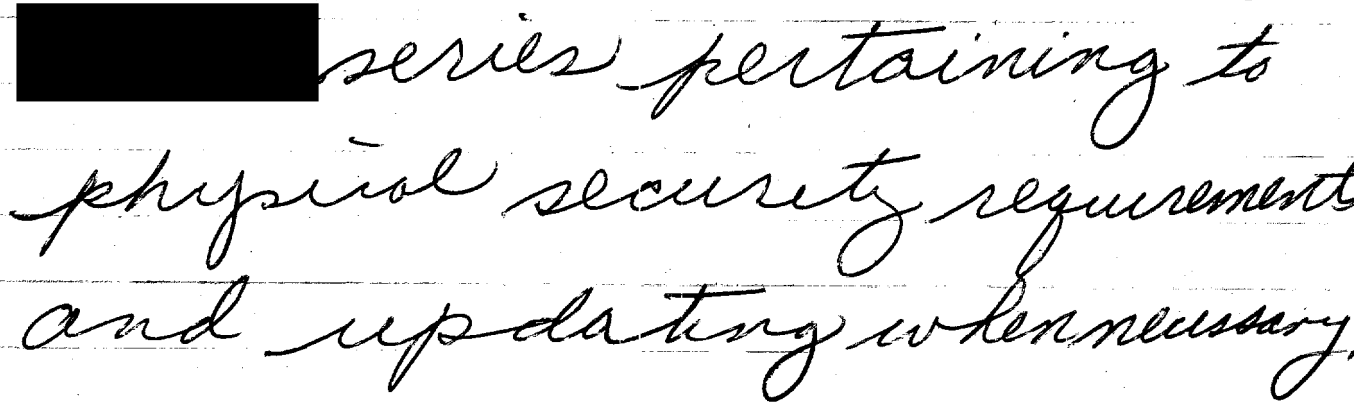 series pertaining to
physical security requirements
and updating when necessary.